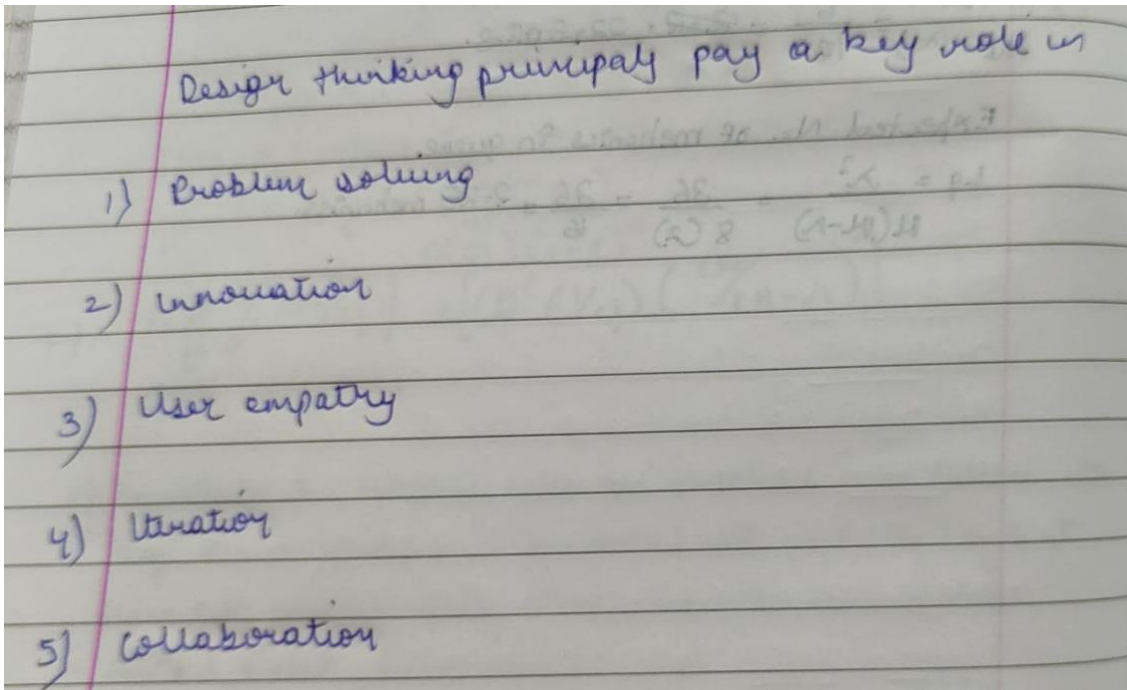 Design thinking principaly pay a key role in
1) Problem solving
2) innovation
3) User empathy
4) Iteration
5) Collaboration